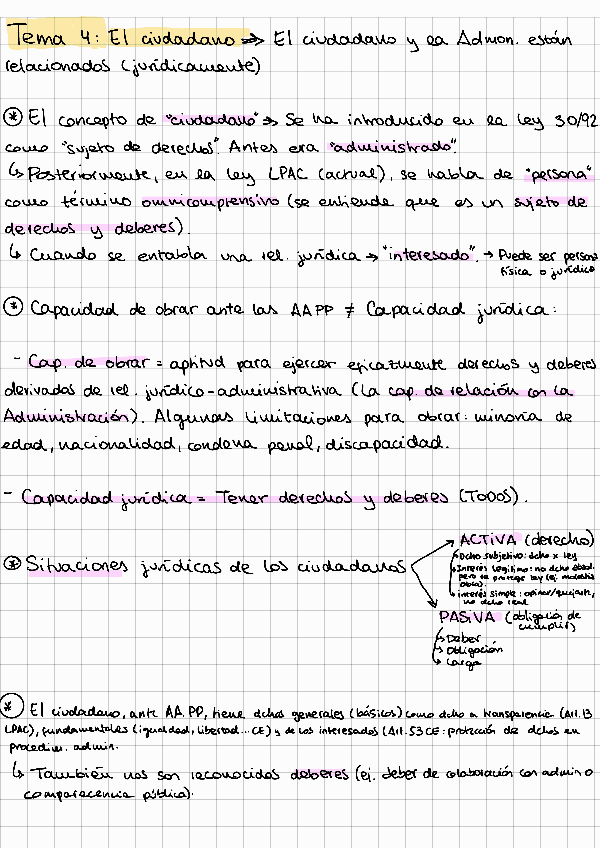 Tema 4: El ciudadano => El ciudadano y la Admon. están
relacionados (jurídicamente)
* El concepto de "ciudadano" → Se ha introducido en la ley 30/92
como "sujeto de derechos". Antes era "administrado".
↳ Posteriormente, en la ley LPAC (actual), se habla de "persona"
como término omnicomprensivo (se entiende que es un sujeto de
derechos y deberes).
↳ Cuando se entabla una rel. jurídica → "interesado". → Puede ser persona
física o jurídica
* Capacidad de obrar ante las AAPP ≠ Capacidad jurídica:
- Cap. de obrar = aptitud para ejercer eficazmente derechos y deberes
derivados de rel. jurídico-administrativa (La cap. de relación con la
Administración). Algunas limitaciones para obrar: minoría de
edad, nacionalidad, condena penal, discapacidad.
- Capacidad jurídica = Tener derechos y deberes (TODOS).
* Situaciones jurídicas de los ciudadanos
ACTIVA (derecho)
↳ Dcho subjetivo: dcho x ley
↳ Interés legítimo: no dcho
pero te protege ley (ej. molestia
obra).
↳ interés simple: opinar/quejarte,
no dcho real
PASIVA (obligación de
cumplir)
↳ Deber
↳ Obligación
↳ Carga
* El ciudadano, ante AA.PP, tiene dchos generales (básicos) como dcho a transparencia (Art. 13
LPAC), fundamentales (igualdad, libertad... CE) y de los interesados (Art. 53 CE: protección de dchos en
procedim. admin.
↳ También nos son reconocidos deberes (ej. deber de colaboración con admin o
comparecencia pública).